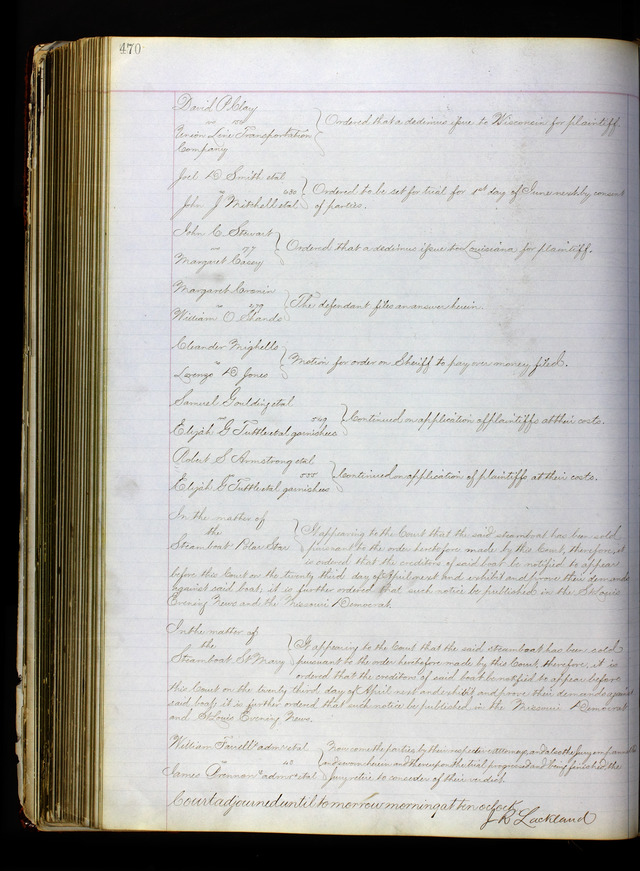 470
David P. Clay
Union Line Transportation Company
Ordered that a dedimus issue to Wisconsin for plaintiff.
Joel D Smith etal
John J Mitchell etal
Ordered to be set for trial for 1st day of June next by consent
of parties.
John C. Stewart
vs 77
Margaret Casey
Ordered that a dedimus issue to Louisiana for plaintiff.
Margaret Cronin
William O Shands
The defendant files an answer herein.
Cleander Mighells
Lorenzo D Jones
Motion for order on Sheriff to pay over money filed.
Samuel Goulding etal
Elijah G Tuttle etal garnishees
Continued on application of plaintiffs at their costs.
Robert S Armstrong etal
Elijah G Tuttle etal garnishees
Continued on application of plaintiffs at their costs.
In the matter of
the
Steamboat Polar Star
It appearing to the Court that the said steamboat has been sold
pursuant to the order heretofore made by this Court, therefore, it
is ordered that the creditors of said boat be notified to appear
before this Court on the twenty third day of April next and exhibit and prove their demands
against said boat, it is further ordered that such notice be published in the St Louis
Evening News and the Missouri Democrat.
In the matter of
the
Steamboat St Mary
It appearing to the Court that the said steamboat has been sold
pursuant to the order heretofore made by this Court, therefore, it is
ordered that the creditors of said boat be notified to appear before
this Court on the twenty third day of April next and exhibit and prove their demands against
said boat, it is further ordered that such notice be published in the Missouri Democrat
and St Louis Evening News.
William admr etal
James admr etal
Now come the parties by their respective attorneys, and also the Jury
and sworn herein and thereupon the trial progressed and being finished the
Jury retire to consider of their verdict.
Court adjourned until tomorrow morning at ten o'clock
J. R. Lackland